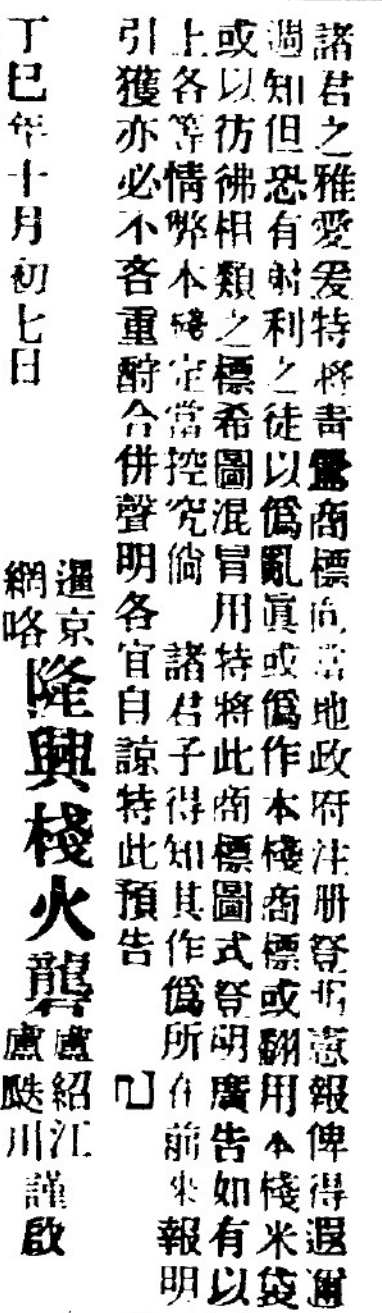 諸君之雅愛爰特將青鷺商標向當地政府注册登諸憲報俾得遐邇
週知但恐有射利之徒以僞亂眞或僞作本棧商標或翻用本棧米袋
或以彷彿相類之標希圖混冒用特將此商標圖式登明廣告如有以
上各等情弊本棧定當控究倘 諸君子得知其作僞所在前來報明
引獲亦必不吝重酧合併聲明各宜自諒特此預告
丁巳年十月初七日
暹京
網咯
隆興棧火礱
盧紹江
盧颷川
謹啟